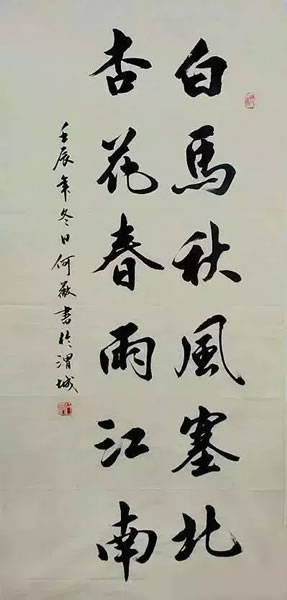 白馬秋風塞北
杏花春雨江南
壬辰年冬日何敬書於渭城